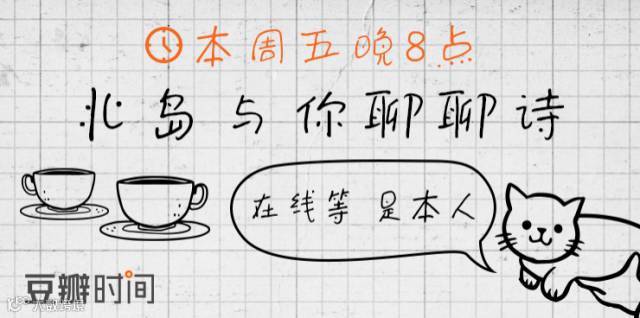 本周五晚8点
北岛与你聊聊诗
在线等 是本人
豆瓣时间